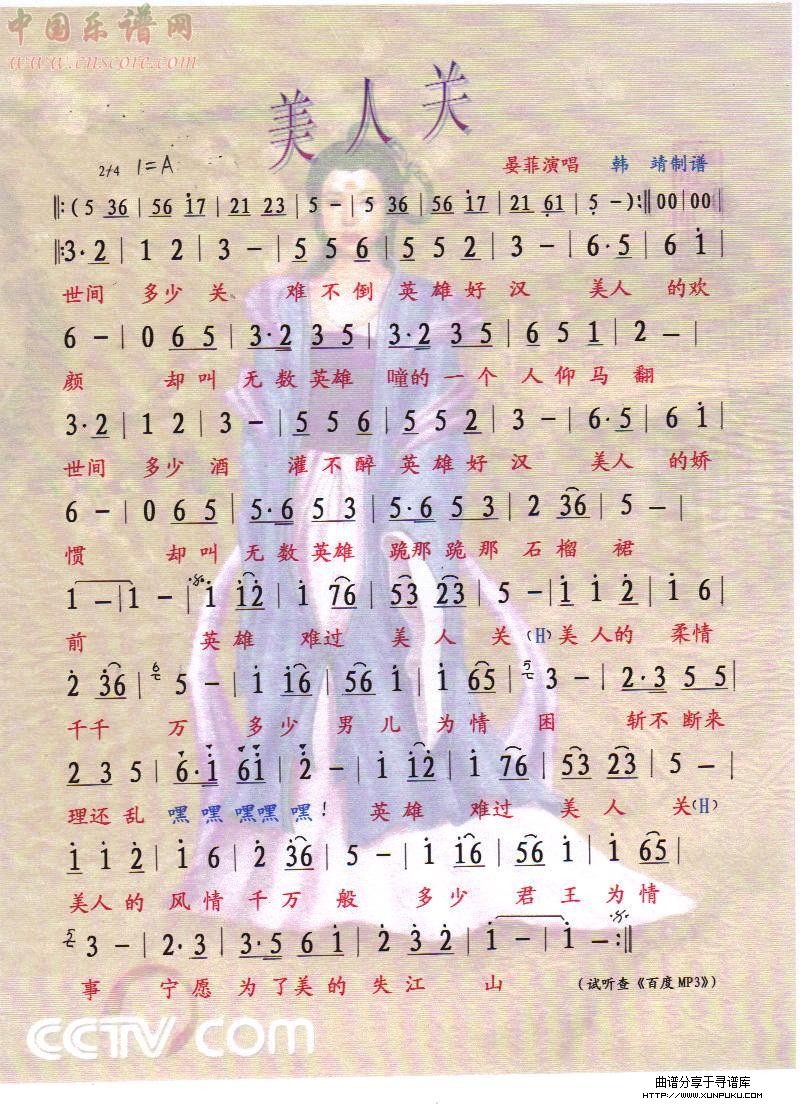 中国乐谱网
www.cnscore.com
美人关
2/4 1=A 晏菲演唱 韩 靖制谱
‖:(5 36|56 17|21 23|5 -|5 36|56 17|21 61|5 -):‖00|00|
‖:3·2|1 2|3 -|5 5 6|5 5 2|3 -|6·5|6 i|
世间 多少 关 难 不 倒 英 雄 好 汉 美人 的欢
6 -|0 6 5|3·2 3 5|3·2 3 5|6 5 1|2 -|
颜 却叫 无数英雄 噇的一个 人仰马 翻
3·2|1 2|3 -|5 5 6|5 5 2|3 -|6·5|6 i|
世间 多少 酒 灌不醉 英雄好 汉 美人 的娇
6 -|0 6 5|5·6 5 3|5·6 5 3|2 36|5 -|
惯 却叫 无数英雄 跪那跪那 石榴 裙
1 -|1 -|i i2|i 76|53 23|5 -|i i 2|i 6|
前 英雄 难过 美人 关(H)美人的 柔情
2 36|5 -|i i6|56 i|i 65|3 -|2·3 5 5|
千千 万 多少 男儿 为情 困 斩不断来
2 3 5|6·i 6i|2 -|i i2|i 76|53 23|5 -|
理还乱 嘿嘿嘿嘿嘿! 英雄 难过 美人 关(H)
i i 2|i 6|2 36|5 -|i i6|56 i|i 65|
美人的 风情 千万 般 多少 君王 为情
3 -|2·3|3·5 6 i|2 3 2|i -|i -:‖
事 宁愿 为了美的 失江 山 (试听查《百度MP3》)
CCTV.com
曲谱分享于寻谱库
HTTP://WWW.XUNPUKU.COM